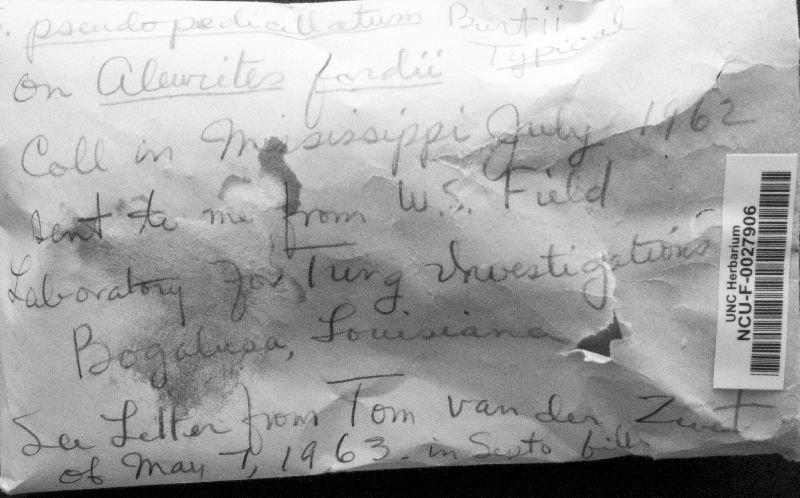 . pseudopedicillatum Burtii
Typical
on Aleurites fordii
Coll in Missississippi July 1962
sent to me from W.S. Field
Laboratory for Tung Investigations
Bogalusa, Louisiana
See Letter from Tom van der Zwet
of May 7, 1963. in Septo files
UNC Herbarium
NCU-F-0027906